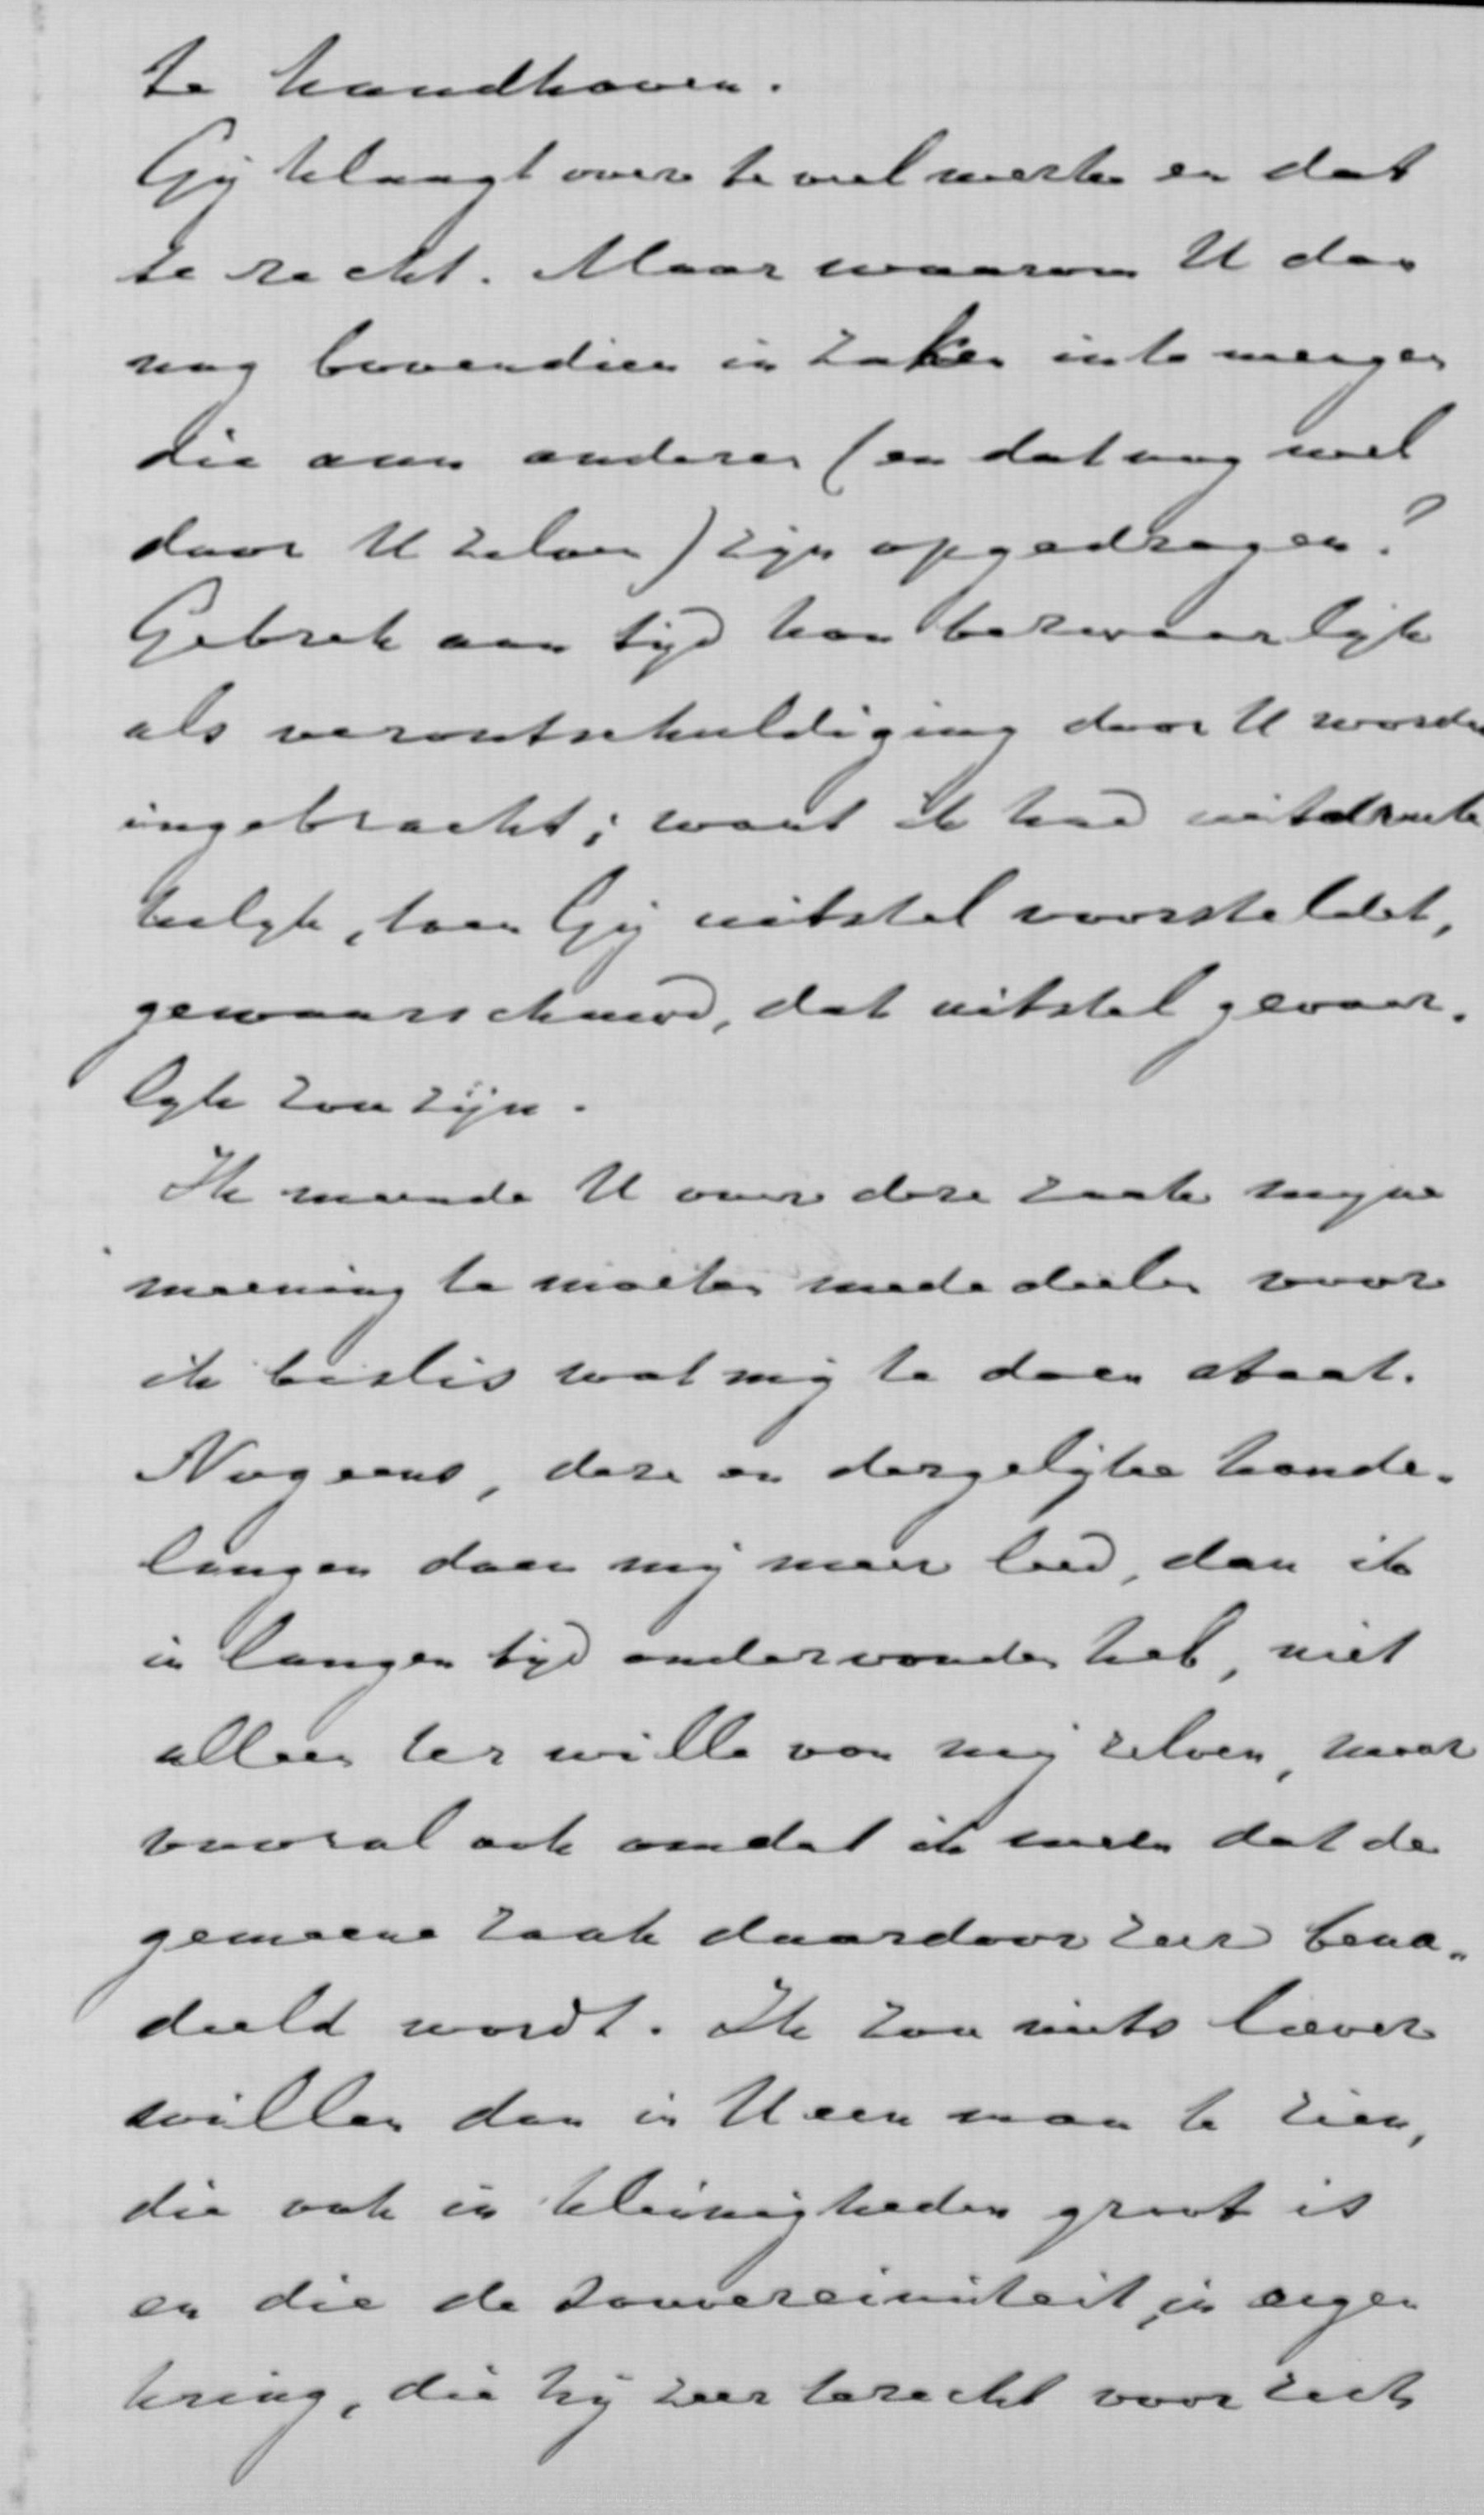 te handhaven.
Gij klaagt over te veel werk en dat
te recht. Maar waarom U dan
nog bovendien in zaken inte mengen
die aan anderen (en dat nog wel
door U zelven) zijn opgedragen?
Gebrek aan tijd kan bezwaarlijk
als verontschuldiging door U worden
ingebracht; want ik had uitdruk
kelijk, toen Gij uitstel voorsteldet,
gewaarschuwd, dat uitstel gevaar-
lijk zou zijn.
Ik meende U over deze zaak mijne
meening te moeten mededeelen voor
ik beslis wat mij te doen staat.
Nog eens, deze en dergelijke hande-
lingen doen mij meer leed, dan ik
in langen tijd ondervonden heb, niet
alleen ter wille van mij zelven, maar
vooral ook omdat ik meen dat de
gemeene zaak daardoor zeer bena-
deeld wordt. Ik zou niets liever
willen dan in U een man te zien,
die ook in kleinigheden groot is
en die de souvereiniteit in eigen
kring, die hij zeer terecht voor zich